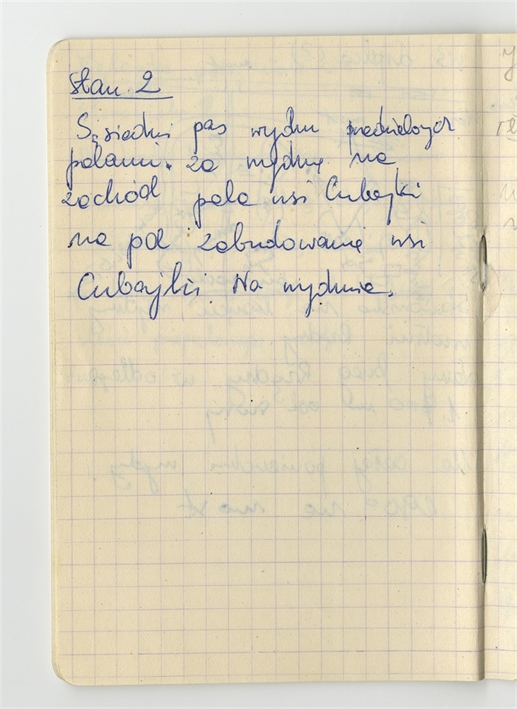 Stan. 2
Sąsiedni pas wydm przedzielonych
polami. za wydmą na
zachód pola wsi Cubajki
na pd zabudowania wsi
Cubajki. Na wydmie.